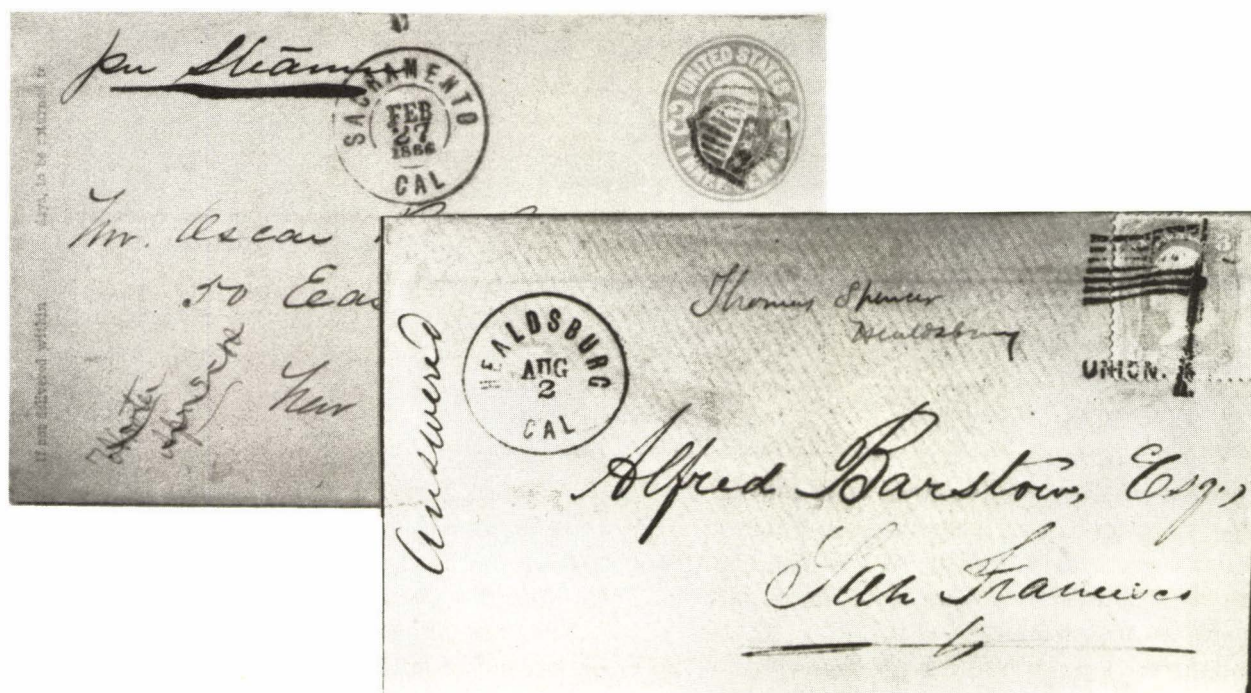 per Steamer
SACRAMENTO
FEB
27
1866
CAL
UNITED STATES
If not delivered within days, to be returned to
Mr. Oscar
50 Eas
New
Answered
HEALDSBURG
AUG
2
CAL
Thomas Spencer
Healdsburg
3
UNION.
Alfred Barstow, Esq.,
San Francisco